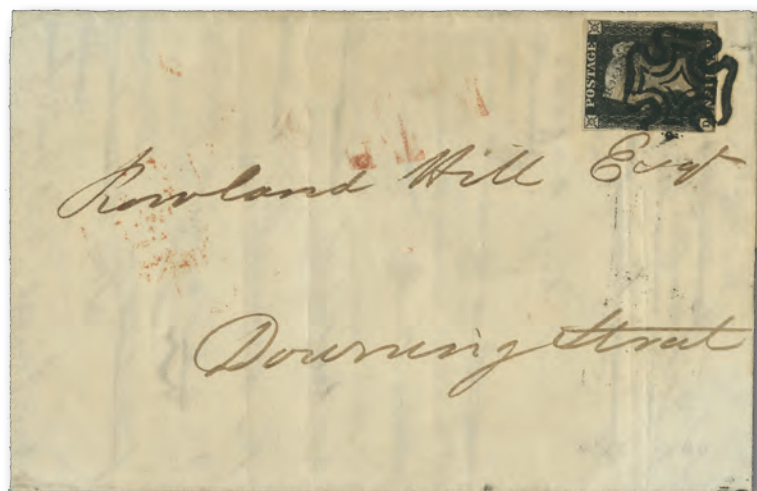 POSTAGE
Rowland Hill Esqr
Downing Street